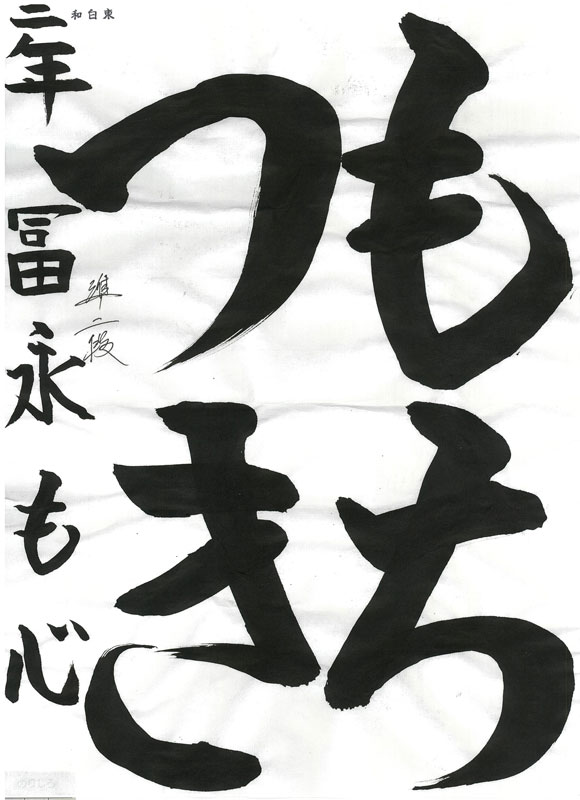 もち
つき
二年 冨永も心
準二段
東白和